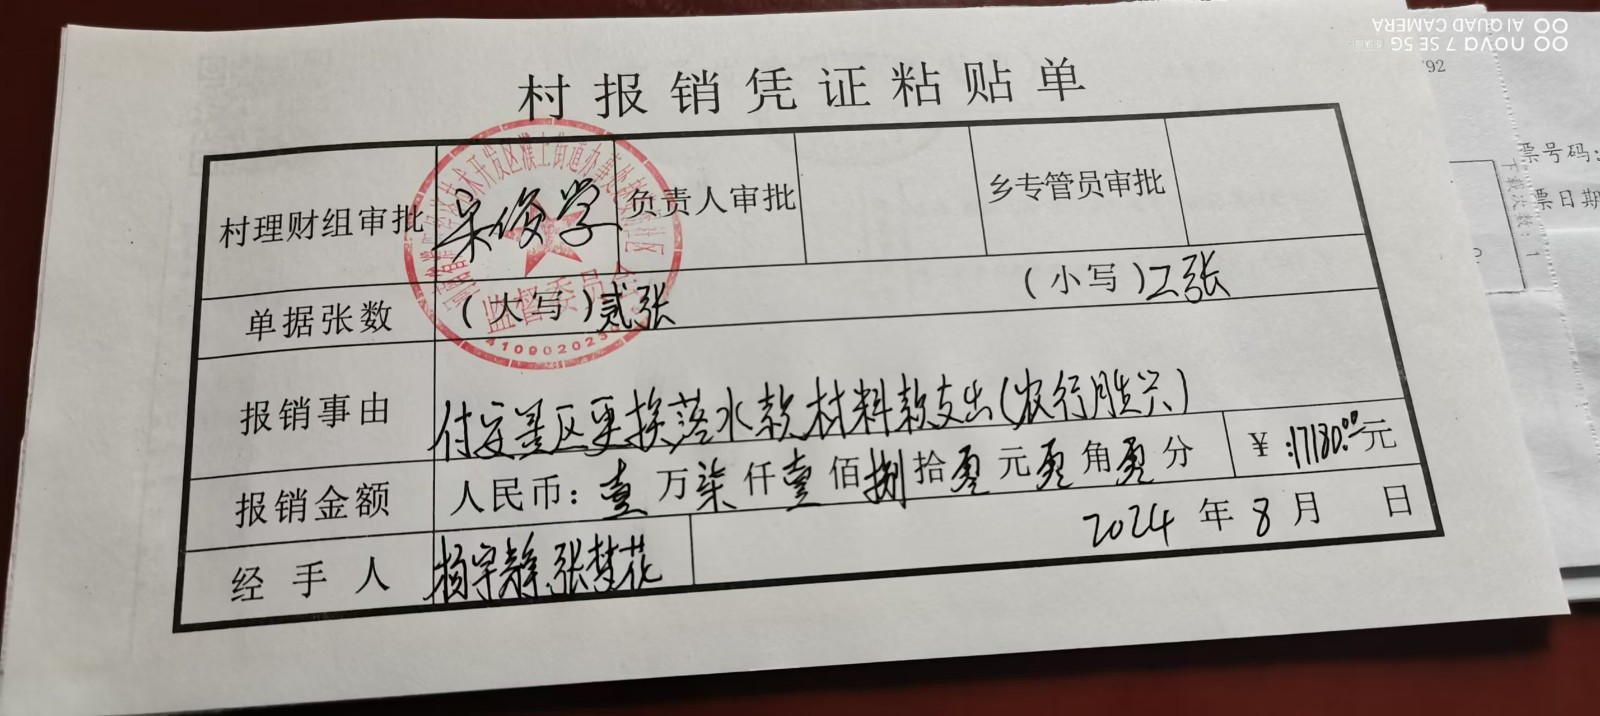 村报销凭证粘贴单
村理财组审批 吴俊学 负责人审批 乡专管员审批
单据张数 (大写)贰张 (小写)2张
报销事由 付安置区更换落水款材料款支出(农行胜兴)
报销金额 人民币:壹万柒仟壹佰捌拾零元零角零分 ¥:17180.00元
经手人 杨宇静.张梦花 2024年8月 日
监督委员会
票号码:
票日期
下载次数:1
92
nova 7 SE 5G
AI QUAD CAMERA